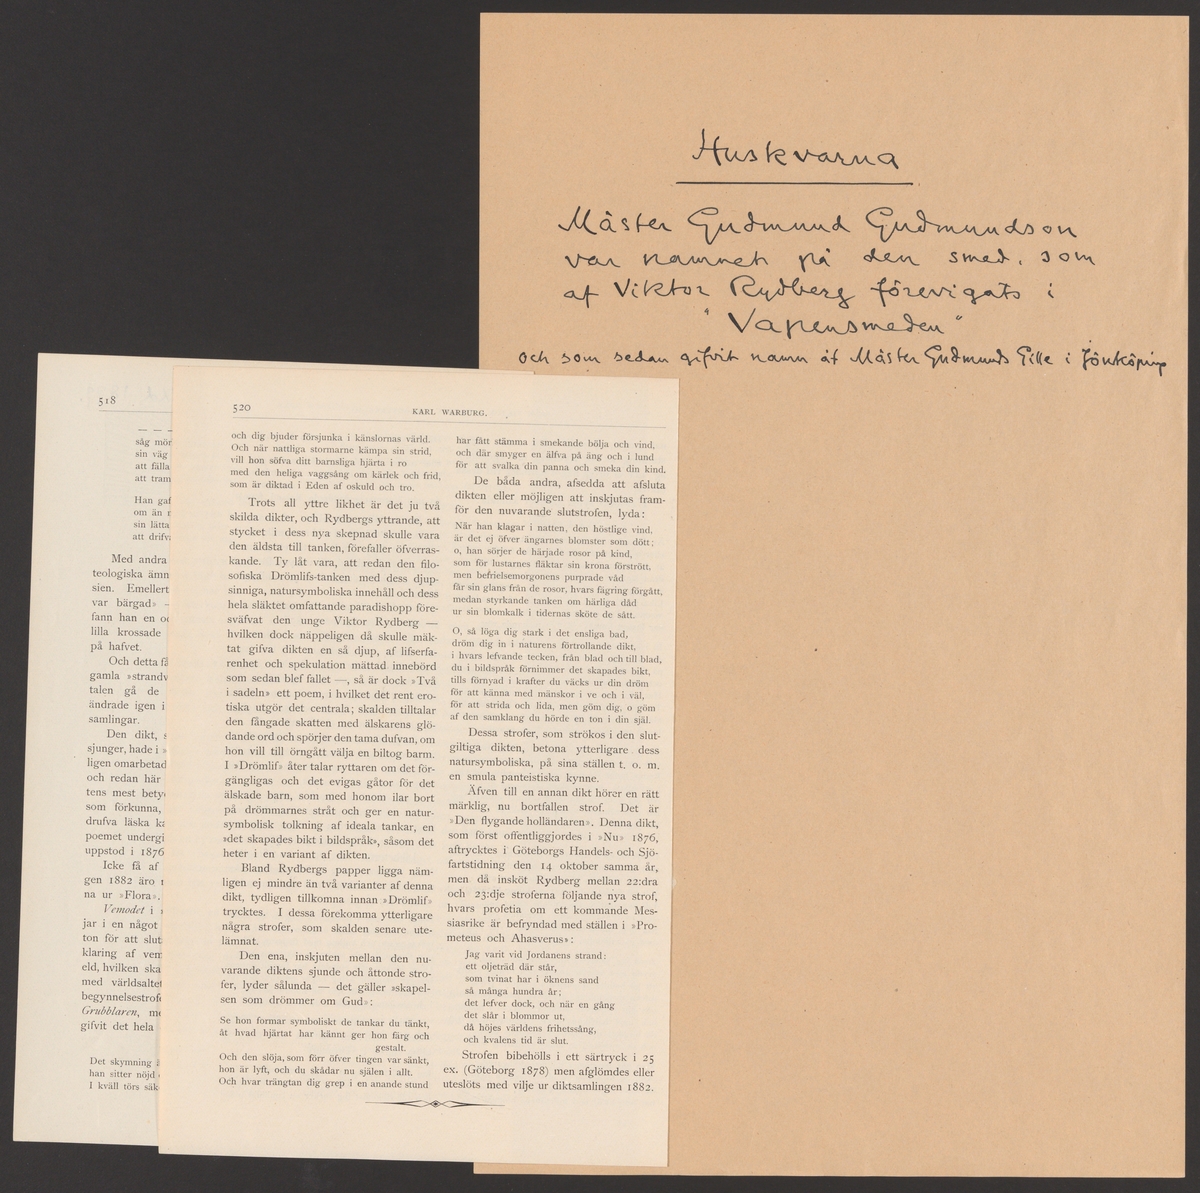 Huskvarna
Mäster Gudmund Gudmundson
var namnet på den smed, som
af Viktor Rydberg förevigats i
"Vapensmeden"
och som sedan gifvit namn åt Mäster Gudmunds Gille i Jönköping
518
såg mör
sin väg
att fälla
att tram
Han gaf
om än r
sin lätta
att drifva
Med andra
teologiska ämn
sien. Emellert
var bärgad» —
fann han en oc
lilla krossade
på hafvet.
Och detta få
gamla »strandv
talen gå de
ändrade igen i
samlingar.
Den dikt, s
sjunger, hade i »
ligen omarbetad
och redan här
tens mest bety
som förkunna,
drufva läska ka
poemet undergi
uppstod i 1876
Icke få af
gen 1882 äro r
na ur »Flora».
Vemodet i »
jar i en något
ton för att slut
klaring af vem
eld, hvilken ska
med världsaltet
begynnelsestrofe
Grubblaren, me
gifvit det hela
Det skymning ä
han sitter nöjd
I kväll törs säk
520
KARL WARBURG.
och dig bjuder försjunka i känslornas värld.
Och när nattliga stormarne kämpa sin strid,
vill hon söfva ditt barnsliga hjärta i ro
med den heliga vaggsång om kärlek och frid,
som är diktad i Eden af oskuld och tro.
Trots all yttre likhet är det ju två
skilda dikter, och Rydbergs yttrande, att
stycket i dess nya skepnad skulle vara
den äldsta till tanken, förefaller öfverras-
kande. Ty låt vara, att redan den filo-
sofiska Drömlifs-tanken med dess djup-
sinniga, natursymboliska innehåll och dess
hela släktet omfattande paradishopp före-
sväfvat den unge Viktor Rydberg —
hvilken dock näppeligen då skulle mäk-
tat gifva dikten en så djup, af lifserfa-
renhet och spekulation mättad innebörd
som sedan blef fallet —, så är dock »Två
i sadeln» ett poem, i hvilket det rent ero-
tiska utgör det centrala; skalden tilltalar
den fångade skatten med älskarens glö-
dande ord och spörjer den tama dufvan, om
hon vill till örngått välja en biltog barm.
I »Drömlif» åter talar ryttaren om det för-
gängligas och det evigas gåtor för det
älskade barn, som med honom ilar bort
på drömmarnes stråt och ger en natur-
symbolisk tolkning af ideala tankar, en
»det skapades bikt i bildspråk», såsom det
heter i en variant af dikten.
Bland Rydbergs papper ligga näm-
ligen ej mindre än två varianter af denna
dikt, tydligen tillkomna innan »Drömlif»
trycktes. I dessa förekomma ytterligare
några strofer, som skalden senare ute-
lämnat.
Den ena, inskjuten mellan den nu-
varande diktens sjunde och åttonde stro-
fer, lyder sålunda — det gäller »skapel-
sen som drömmer om Gud»:
Se hon formar symboliskt de tankar du tänkt,
åt hvad hjärtat har kännt ger hon färg och
gestalt.
Och den slöja, som förr öfver tingen var sänkt,
hon är lyft, och du skådar nu själen i allt.
Och hvar trängtan dig grep i en anande stund
har fått stämma i smekande bölja och vind,
och där smyger en älfva på äng och i lund
för att svalka din panna och smeka din kind.
De båda andra, afsedda att afsluta
dikten eller möjligen att inskjutas fram-
för den nuvarande slutstrofen, lyda:
När han klagar i natten, den höstlige vind,
är det ej öfver ängarnes blomster som dött;
o, han sörjer de härjade rosor på kind,
som för lustarnes fläktar sin krona förstrött,
men befrielsemorgonens purprade våd
får sin glans från de rosor, hvars fägring förgått,
medan styrkande tanken om härliga dåd
ur sin blomkalk i tidernas sköte de sått.
O, så löga dig stark i det ensliga bad,
dröm dig in i naturens förtrollande dikt,
i hvars lefvande tecken, från blad och till blad,
du i bildspråk förnimmer det skapades bikt,
tills förnyad i krafter du väcks ur din dröm
för att känna med mänskor i ve och i väl,
för att strida och lida, men göm dig, o göm
af den samklang du hörde en ton i din själ.
Dessa strofer, som strökos i den slut-
giltiga dikten, betona ytterligare dess
natursymboliska, på sina ställen t. o. m.
en smula panteistiska kynne.
Äfven till en annan dikt hörer en rätt
märklig, nu bortfallen strof. Det är
»Den flygande holländaren». Denna dikt,
som först offentliggjordes i »Nu» 1876,
aftrycktes i Göteborgs Handels- och Sjö-
fartstidning den 14 oktober samma år,
men då insköt Rydberg mellan 22:dra
och 23:dje stroferna följande nya strof,
hvars profetia om ett kommande Mes-
siasrike är befryndad med ställen i »Pro-
meteus och Ahasverus»:
Jag varit vid Jordanens strand:
ett oljeträd där står,
som tvinat har i öknens sand
så många hundra år;
det lefver dock, och när en gång
det slår i blommor ut,
då höjes världens frihetssång,
och kvalens tid är slut.
Strofen bibehölls i ett särtryck i 25
ex. (Göteborg 1878) men afglömdes eller
uteslöts med vilje ur diktsamlingen 1882.